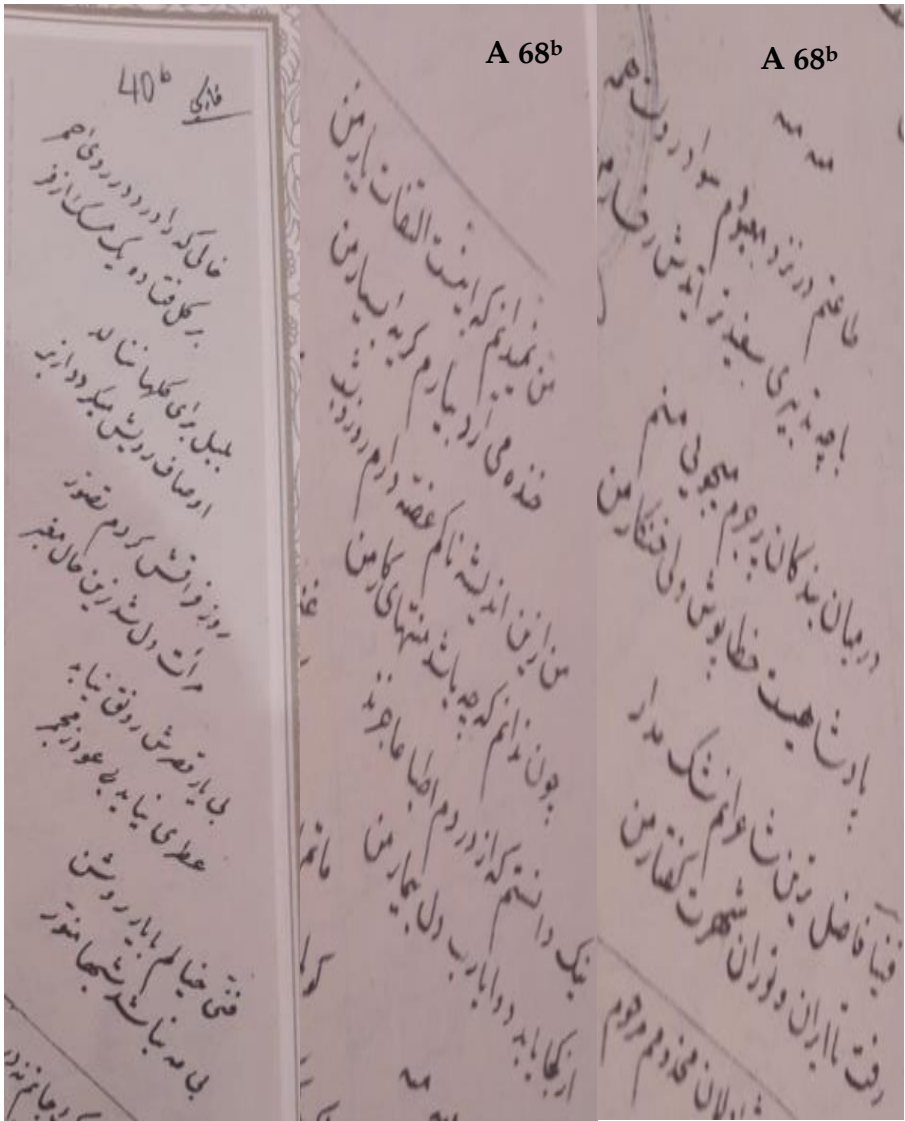 فارسی 40b
خالی که دارد در روی احمر
بر گل فتاده یک مسک ازفر
بلبل برای گلها ننالد
اوصاف رویش میکرد از بر
روز فراقش کردم تصور
مرآت دل شد زین حال مغبر
بی یار قصرش رونق نیابد
عطری نیابد بی عود مجمر
فتی خیالم با یار روشن
بی مه نباشد شبها منور
A 68b
من نمیدانم که اینست التفات یار من
خنده می آرد بیارم گریه بسیار من
من ازین اندیشه ناکم غصه دارم روز و شب
چون ندانم که چه باشد منتهای کار من
نیک دانستم که از دردم اطبا عاجزند
از کجا یابد دوا یارب دل بیمار من
A 68b
در نزد معبودم
با چه تدبیری سفید
در میان بندگان پرجرم میجویی منم
پادشاهیست خطاپوش ولی
فتیا فاضل ترین شاعرانم شک مدار
رفت تا ایران و توران شهرت گفتار من
مخدوم مرحوم